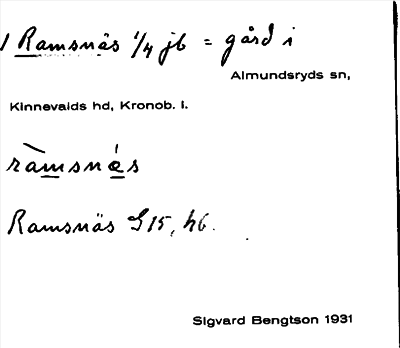 1 Ramsnäs 1/4 jb = gård i
Almundsryds sn,
Kinnevalds hd, Kronob. l.
ràmsnés
Ramsnäs G15, h6.
Sigvard Bengtson 1931